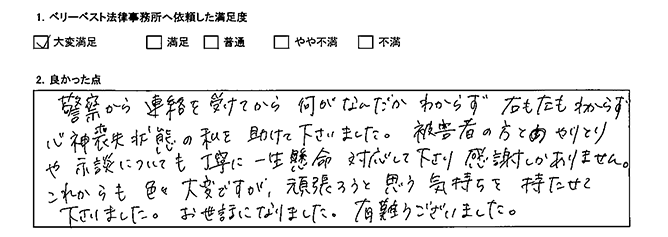 1. ベリーベスト法律事務所へ依頼した満足度
大変満足 満足 普通 やや不満 不満
2. 良かった点
警察から連絡を受けてから何がなんだかわからず右も左もわからず
心神喪失状態の私を助けて下さいました。被害者の方とのやりとり
や示談についても丁寧に一生懸命対応して下さり感謝しかありません。
これからも色々大変ですが、頑張ろうと思う気持ちを持たせて
下さいました。お世話になりました。有難うございました。